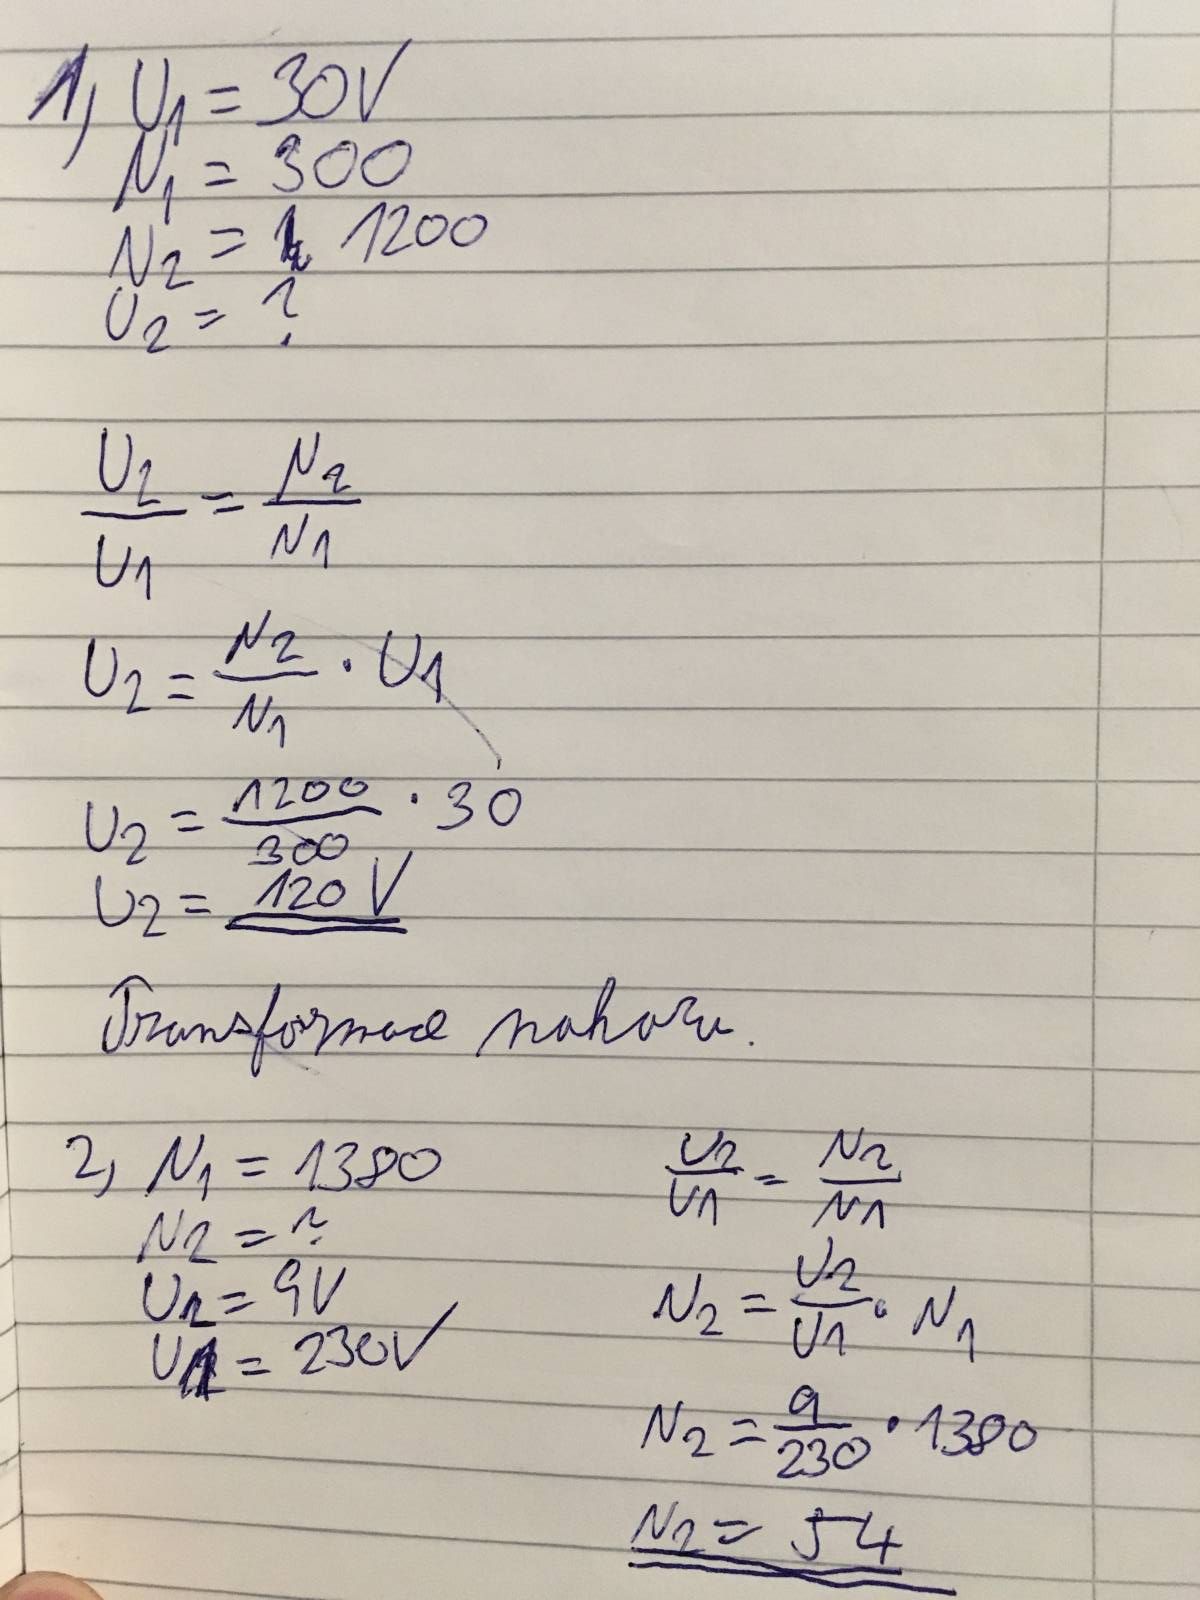 1, U1 = 30V
N1 = 300
N2 = 1200
U2 = ?
U2/U1 = N2/N1
U2 = N2/N1 · U1
U2 = 1200/300 · 30
U2 = 120 V
Transformace nahoru.
2, N1 = 1380
N2 = ?
U2 = 9V
U1 = 230V
U2/U1 = N2/N1
N2 = U2/U1 · N1
N2 = 9/230 · 1380
N2 = 54